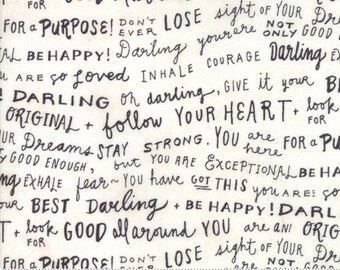 FOR a PURPOSE! DON'T EVER LOSE sight of YOUR Dreams
AL BE HAPPY! Darling you are NOT ONLY GOOD EN
ARE so Loved INHALE COURAGE Darling EX
! DARLING oh darling, GIVE it your BE
ORIGINAL + follow YOUR HEART + look FOR
UR Dreams STAY STRONG. YOU are here FOR a PU
Y GOOD ENOUGH, but YOU ARE EXCEPTIONAL BE HA
ng EXHALE fear~ YOU HAVE GOT THIS you ARE: so
our BEST Darling + BE HAPPY! DARLI
T + look FOR GOOD all around YOU are AN! ORIG
FOR a PURPOSE! DON'T EVER LOSE sight of YOUR Dream